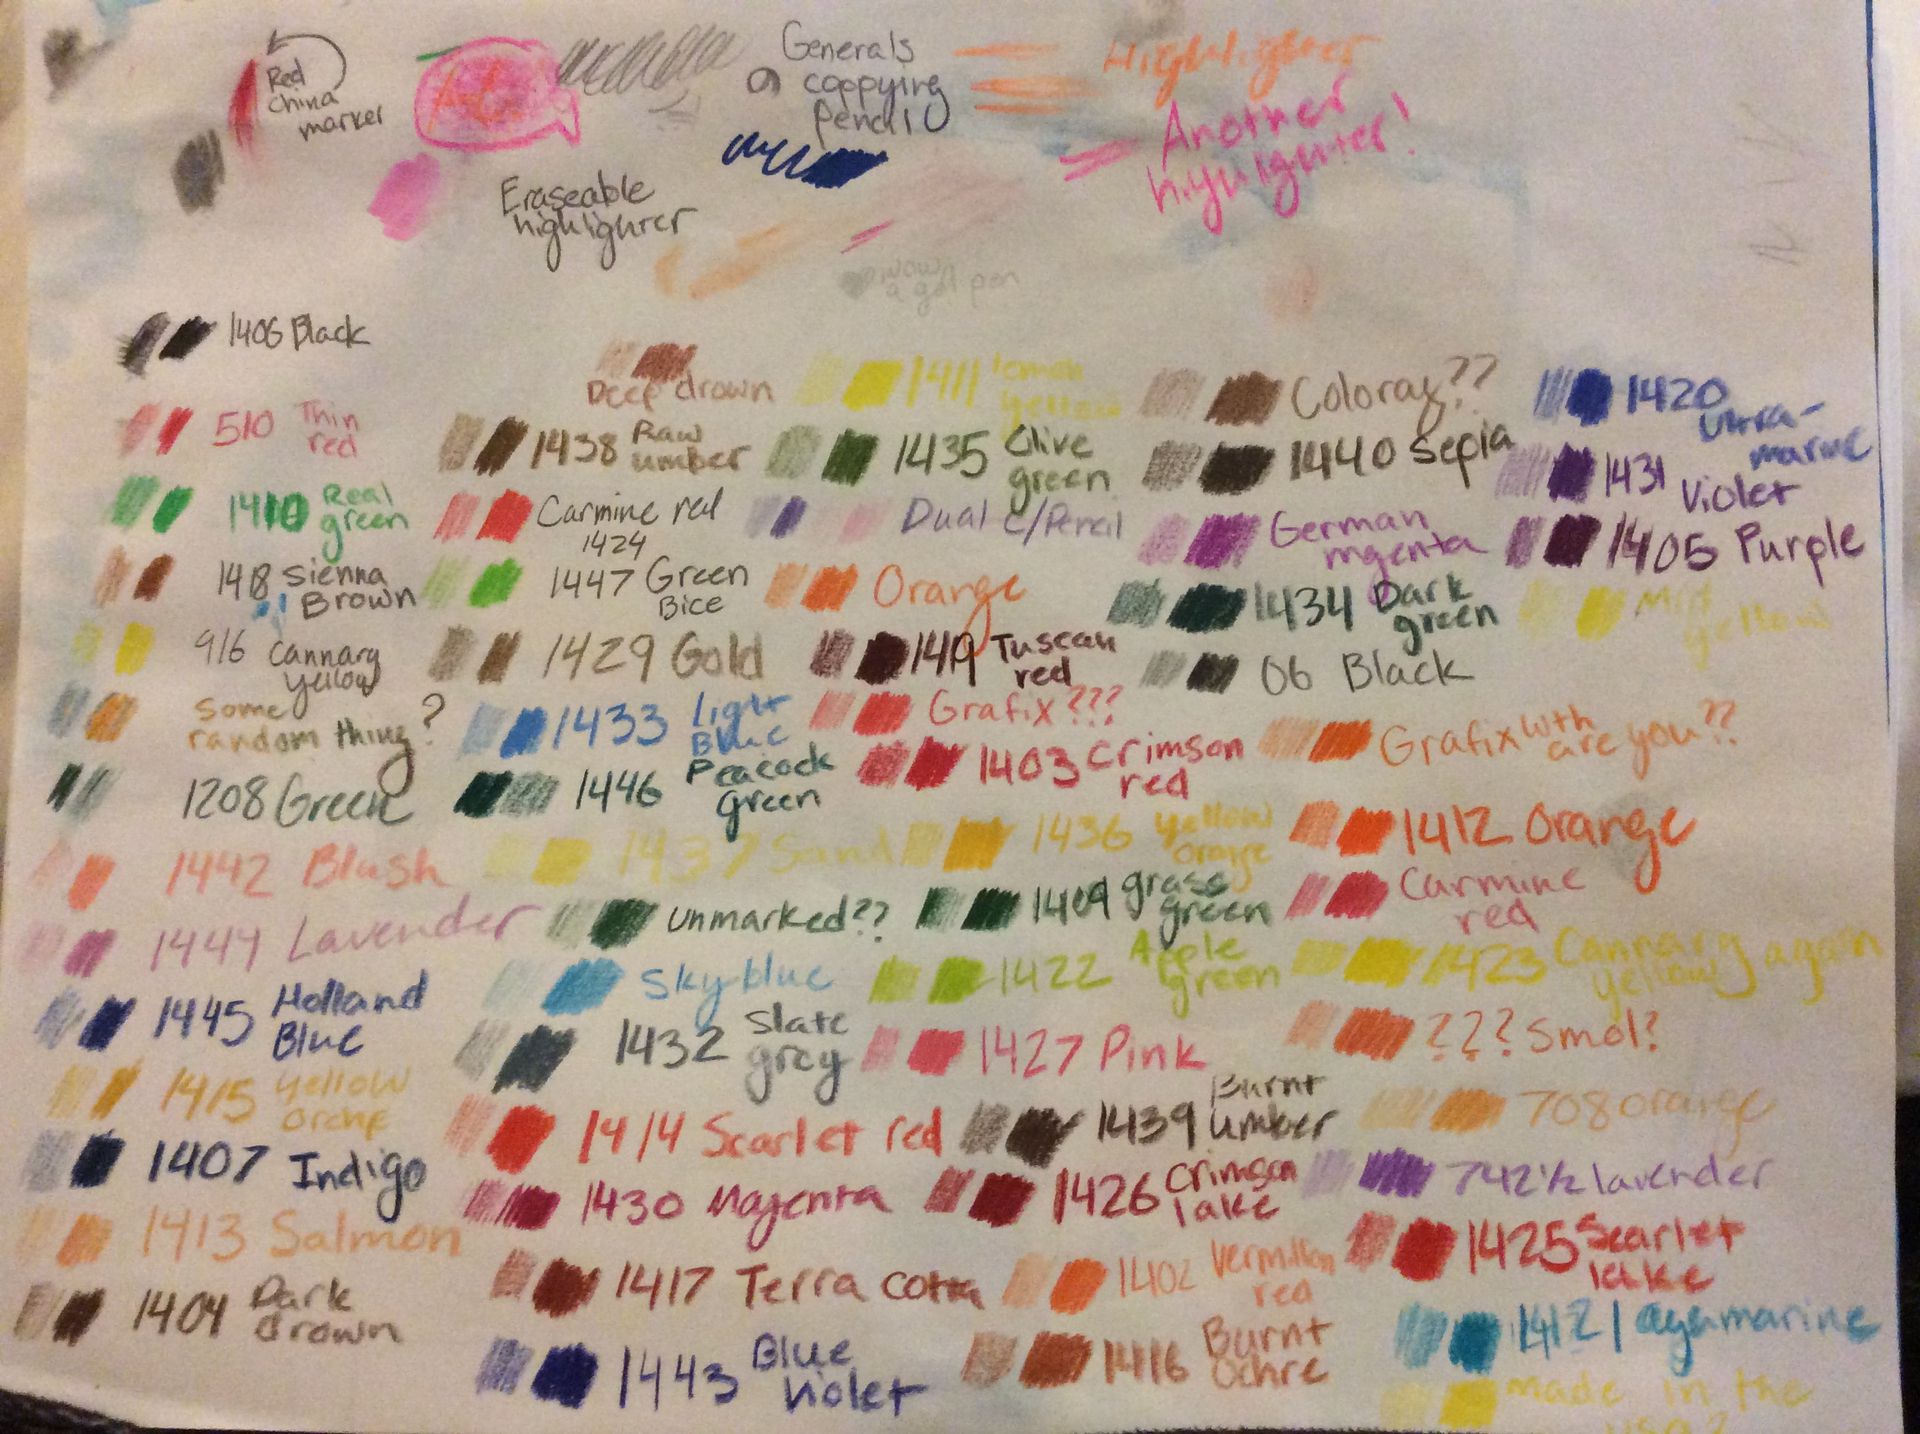 Red
china
marker
Generals
coppying
Pencil
Highlighter
Another
highlighter!
Eraseable
highlighter
wow
a gel pen
1406 Black
510 Thin
red
1410 Real
green
1418 Sienna
Brown
916 Cannary
yellow
Some
random thing?
1208 Green
1442 Blush
1444 Lavender
1445 Holland
Blue
1415 Yellow
Orche
1407 Indigo
1413 Salmon
1404 Dark
drown
Deep drown
1438 Raw
umber
Carmine red
1424
1447 Green
Bice
1429 Gold
1433 Light
Blue
1446 Peacock
Green
1437 Sand
unmarked??
Sky blue
1432 Slate
grey
1414 Scarlet red
1430 Magenta
1417 Terra cotta
1443 Blue
violet
1411 lemon
yellow
1435 Olive
green
Dual c/Pencil
Orange
1419 Tuscan
red
Grafix???
1403 Crimson
red
1436 Yellow
Orange
1409 grass
green
1422 Apple
green
1427 Pink
1439 Burnt
umber
1426 Crimson
lake
1402 Vermilion
red
1416 Burnt
Ochre
Coloray??
1440 Sepia
German
mgenta
1434 Dark
green
06 Black
Grafix wth
are you??
1412 Orange
Carmine
red
1423 Cannary again
yellow
??? Smol?
708 orange
742½ lavender
1425 Scarlet
lake
1421 aqamarine
made in the
usa?
1420
Ultra-
marine
1431
Violet
1405 Purple
yellow